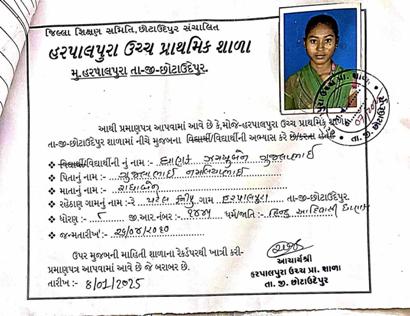 જિલ્લા શિક્ષણ સમિતિ, છોટાઉદેપુર સંચાલિત
હરપાલપુરા ઉચ્ચ પ્રાથમિક શાળા
મુ.હરપાલપુરા તા-જી-છોટાઉદેપુર.
આથી પ્રમાણપત્ર આપવામાં આવે છે કે,મોજે-હરપાલપુરા ઉચ્ચ પ્રાથમિક શાળા
તા-જી-છોટાઉદેપુરમાં નીચે મુજબના વિદ્યાર્થી/વિદ્યાર્થીની અભ્યાસ કરે છે/કરતા
વિદ્યાર્થી/વિદ્યાર્થીની નું નામ :-
પિતાનું નામ :-
માતાનું નામ :- રાધાબેન
રહેઠાણ ગામનું નામ :- રે. પટેલ ફળિયુ ગામ હરપાલપુરા તા-જી-છોટાઉદેપુર
ધોરણ :- ૬ જી.આર.નંબર :- ધર્મ/જાતિ :- હિન્દુ આદિવાસી
જન્મતારીખ :-
ઉપર મુજબની માહિતી શાળાના રેકર્ડપરથી ખાત્રી કરી-
પ્રમાણપત્ર આપવામાં આવે છે જે બરાબર છે.
તારીખ :- 8/01/2025
આચાર્યશ્રી
હરપાલપુરા ઉચ્ચ પ્રા. શાળા
તા. જી. છોટાઉદેપુર